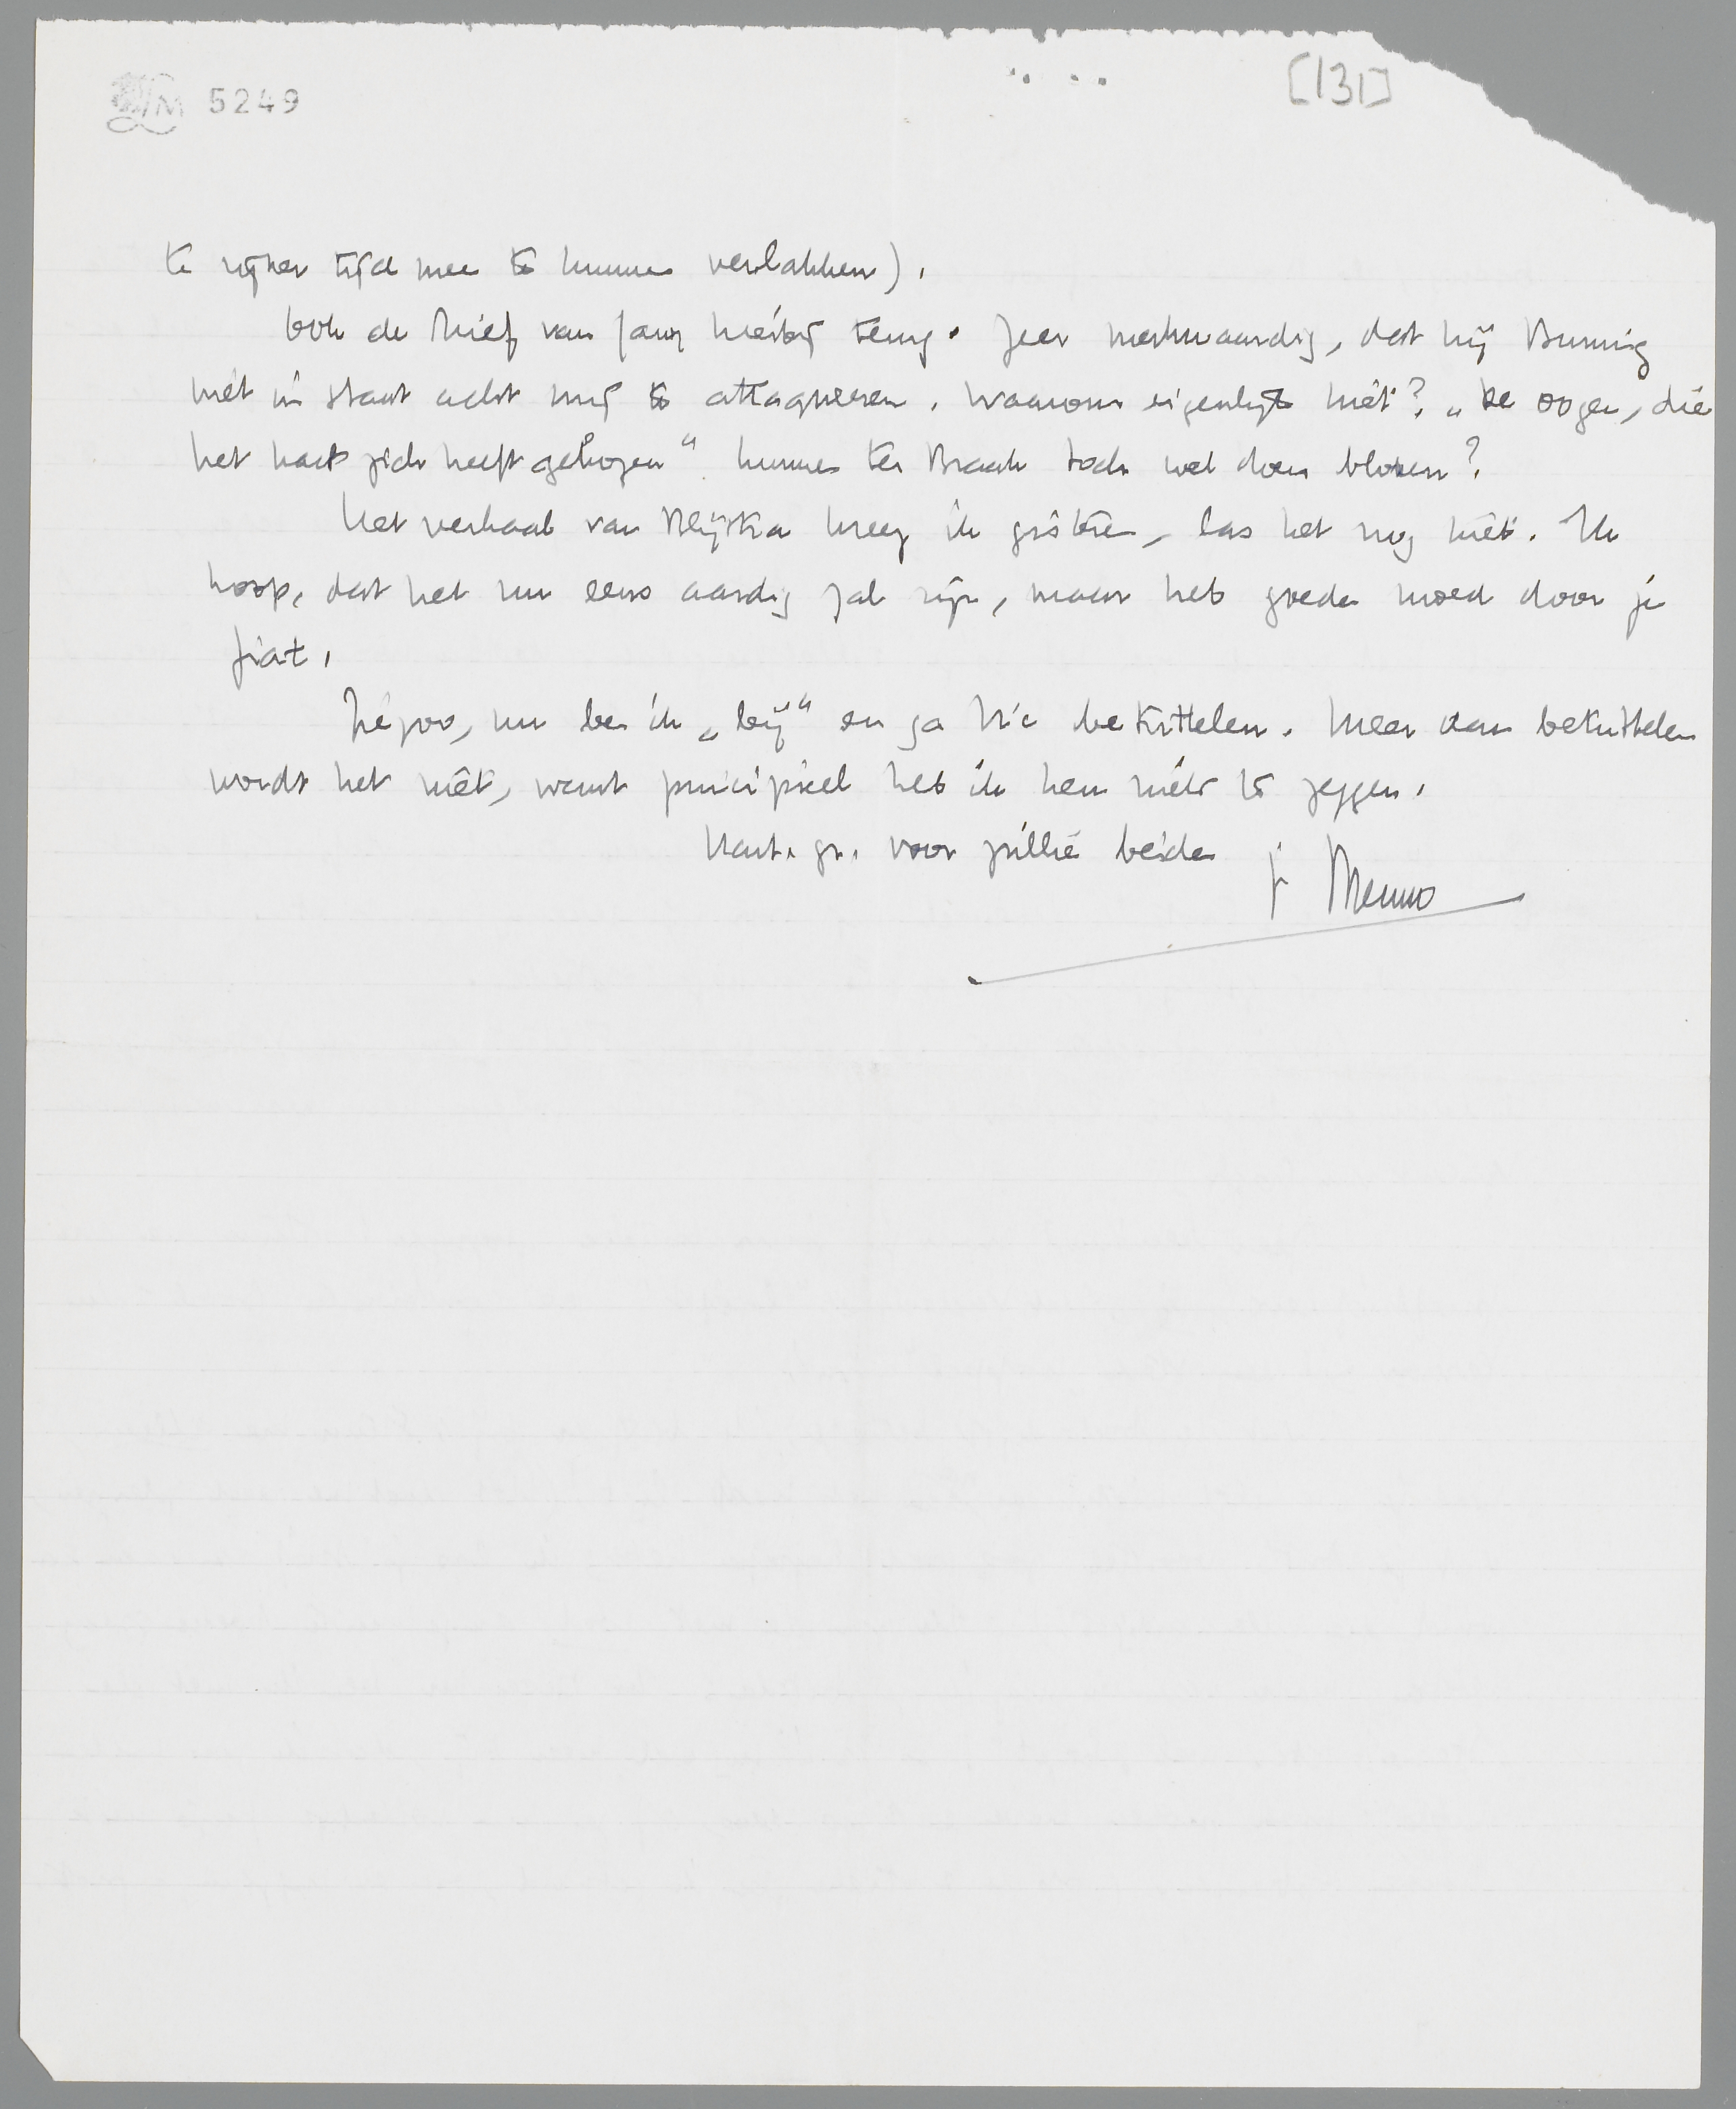 LM 5249
[131]
te zijner tijd mee te kunnen verlakken).
Ook de brief van Jany hierbij terug. Zeer merkwaardig, dat hij Buning
niet in staat acht mij te attaqueeren. Waarom eigenlijk niet? „De oogen, die
het hart zich heeft gekozen" kunnen ter Braak toch wel doen blozen?
Het verhaal van Blijstra kreeg ik gisteren, las het nog niet. Ik
hoop, dat het nu eens aardig zal zijn, maar heb goede moed door je
fiat.
Ziezoo, nu ben ik „bij" en ga Vic bekrittelen. Meer dan bekrittelen
wordt het niet, want principieel heb ik hem niets te zeggen.
Hart. gr. voor jullie beiden je Menno